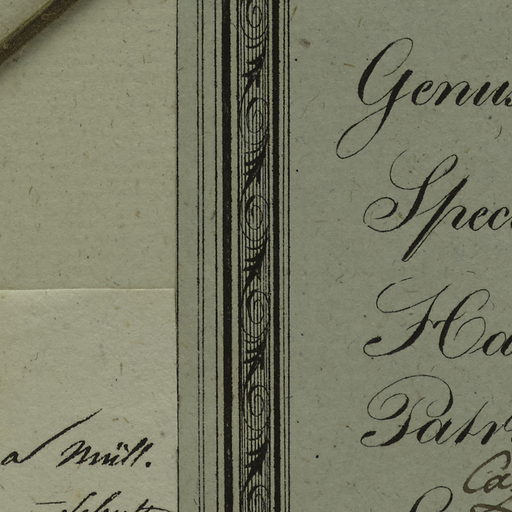 Genus
Spec
Ha
Patr
Ca
a Müll.